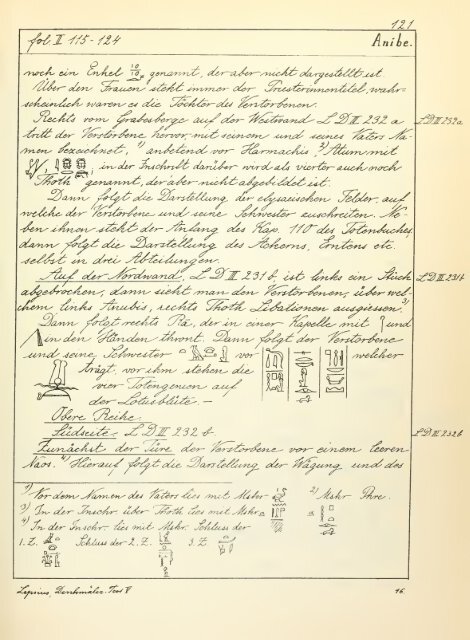 121
fol. II 115-124 Anibe.
noch ein Enkel genannt, der aber nicht dargestellt ist.
Über den Frauen steht immer der Priesterinnentitel, wahr-
scheinlich waren es die Töchter des Verstorbenen.
Rechts vom Grabesberge auf der Westwand L D III 232 a
tritt der Verstorbene hervor, mit seinem und seines Vaters Na-
men bezeichnet, 1) anbetend vor Harmachis, 2) Atum mit
in der Inschrift darüber wird als vierter auch noch
Thoth genannt, der aber nicht abgebildet ist.
Dann folgt die Darstellung der elysaeischen Felder, auf
welche der Verstorbene und seine Schwester zuschreiten. Ne-
ben ihnen steht der Anfang des Kap. 110 des Totenbuches,
dann folgt die Darstellung des Ackerns, Erntens etc.
selbst in drei Abteilungen.
Auf der Nordwand, L D III 231 b, ist links ein Stück
abgebrochen, dann sieht man den Verstorbenen, über wel-
chem links Anubis, rechts Thoth Libationen ausgiessen. 3)
Dann folgt rechts Ra, der in einer Kapelle mit und
in den Händen thront. Dann folgt der Verstorbene
und seine Schwester vor welcher
trägt, vor ihm stehen die
vier Totengenien auf
der Lotusblüte. —
Obere Reihe.
Südseite. L D III 232 b.
Zunächst der Türe der Verstorbene vor einem leeren
Naos. 4) Hierauf folgt die Darstellung der Wägung und des
L D III 232a
L D III 231b
L D III 232b
1) Vor dem Namen des Vaters lies mit Mskr. 2) Mskr. Phre.
3) In der Inschr. über Thoth lies mit Mskr.
4) In der Inschr. lies mit Mskr. Schluss der
1. Z. Schluss der 2. Z. 3. Z.
Lepsius, Denkmäler. Text V 16